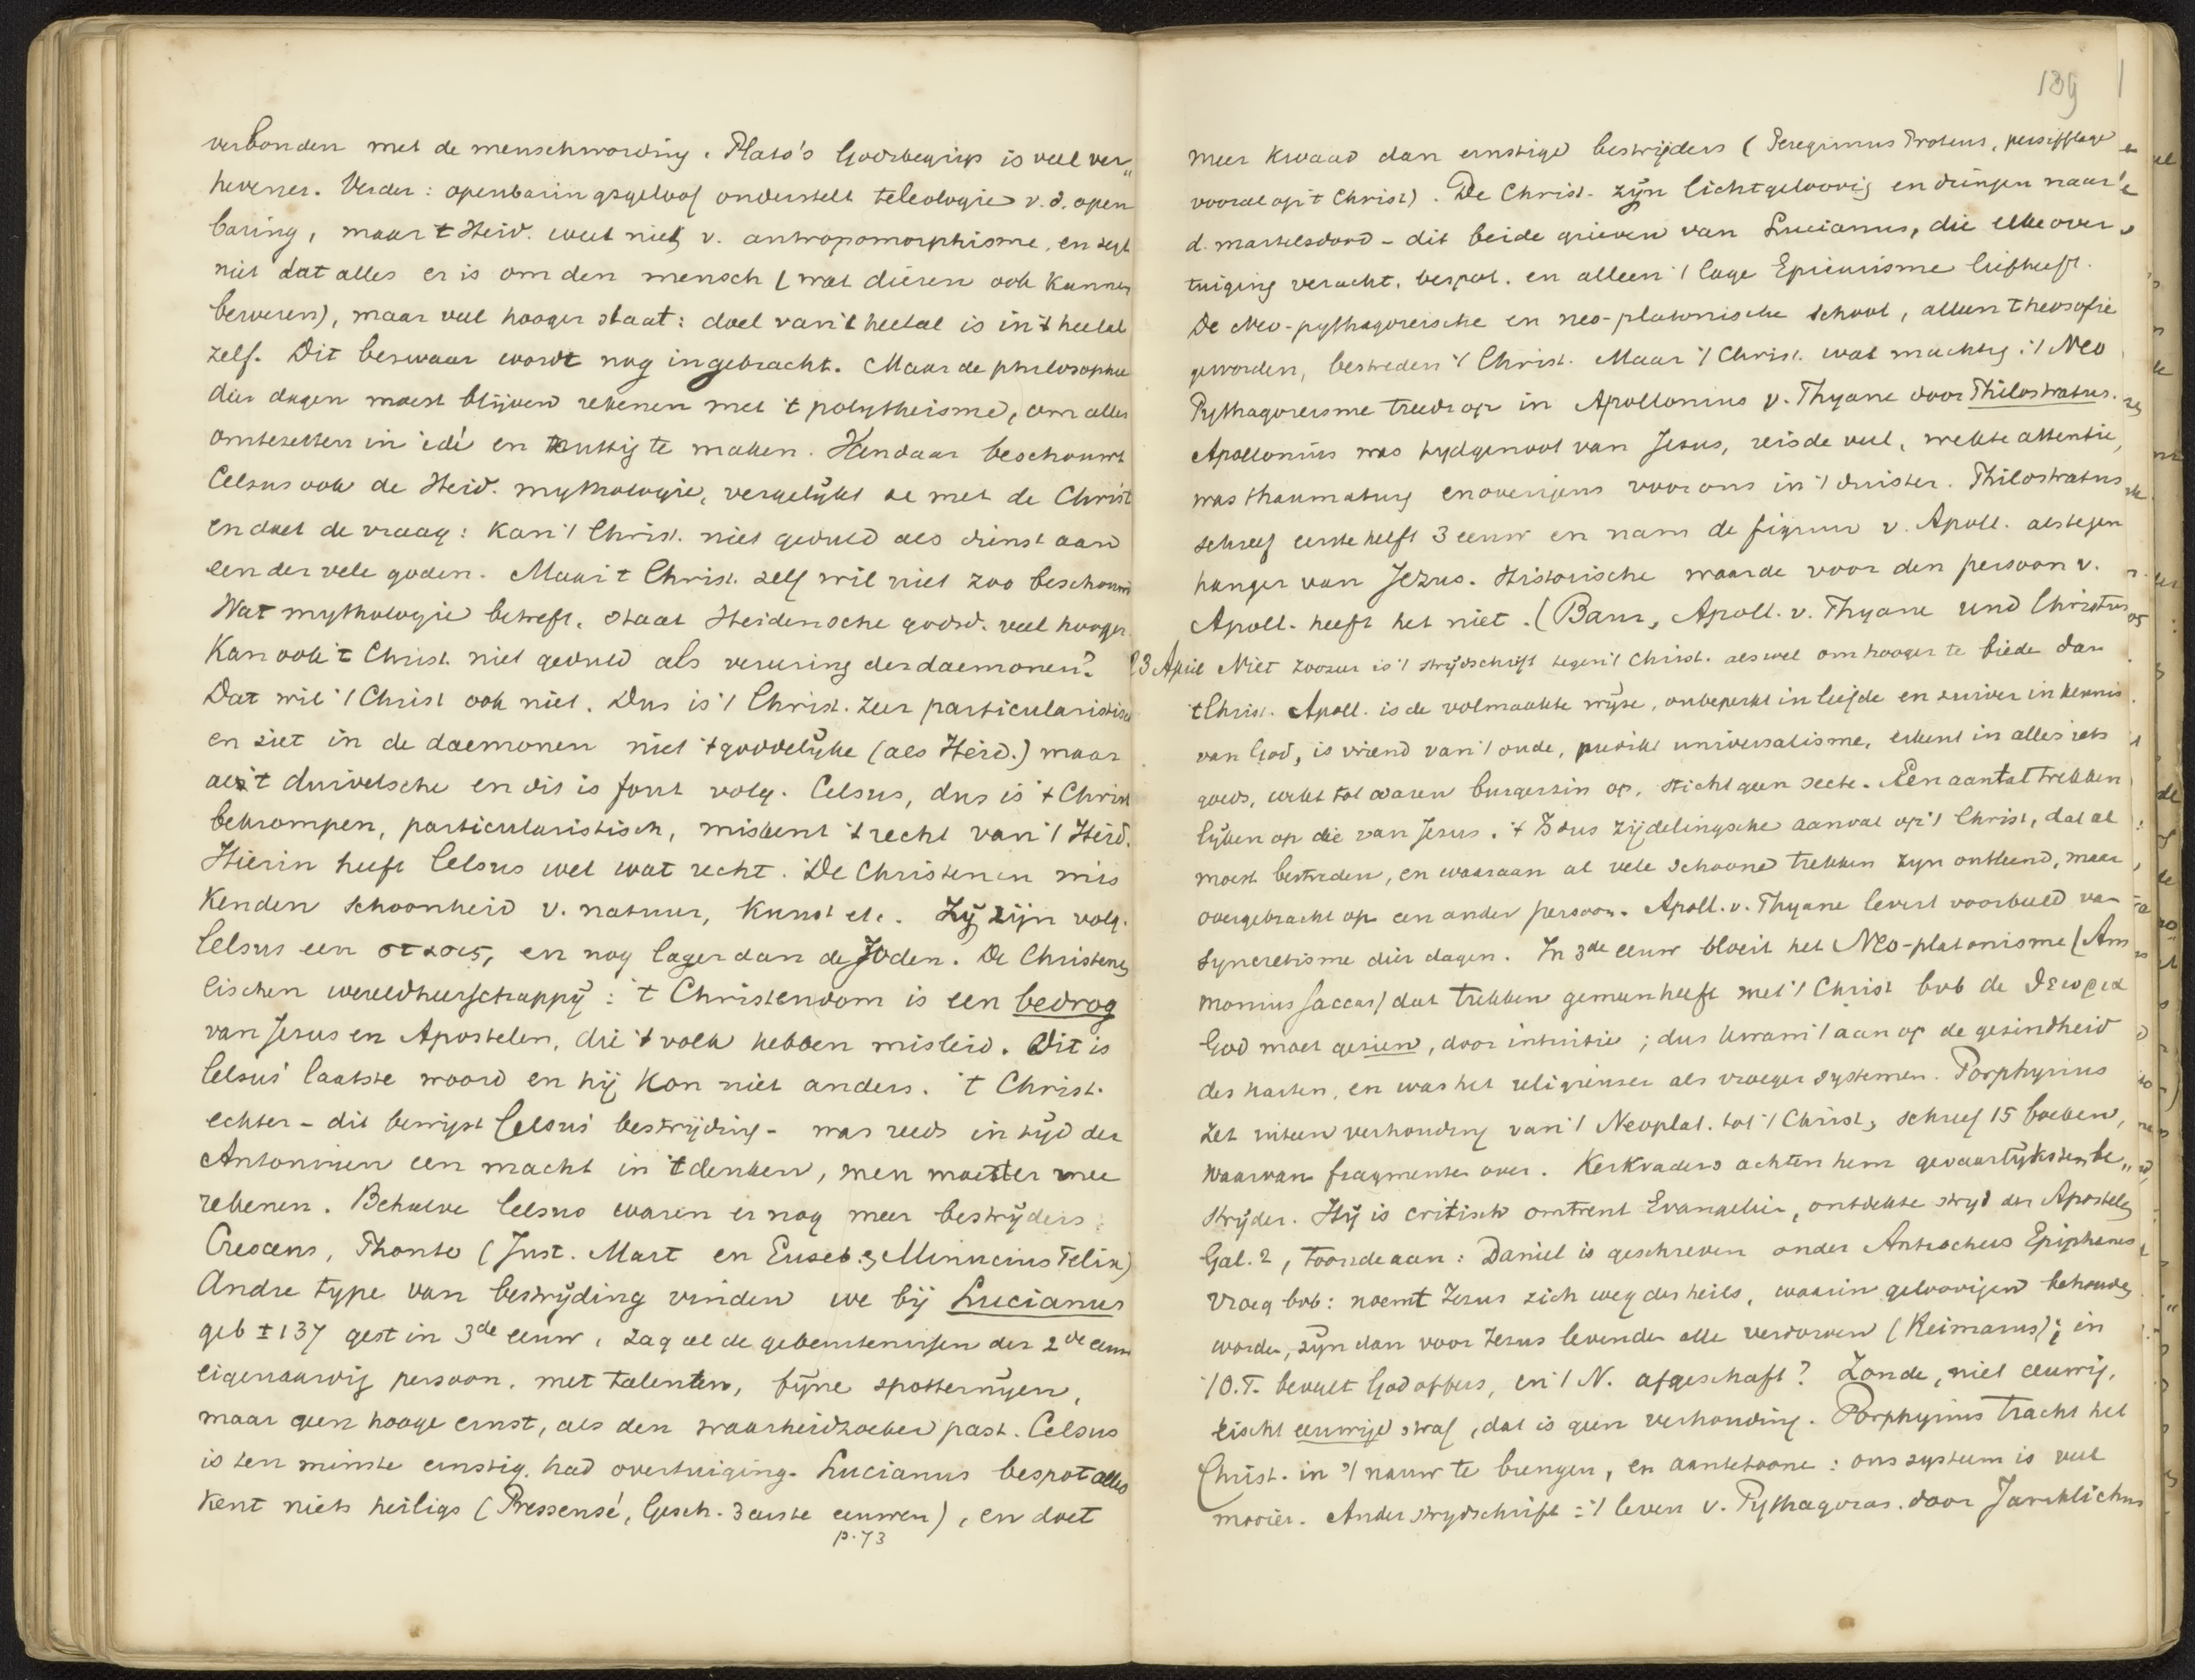 verbonden met de menschwording. Plato's Godsbegrip is veel ver„
hevener. Verder: openbaringsgeloof onderstelt teleologie v. d. open
baring, maar 't Heid. weet niets v. antropomorphisme, en zegt
niet dat alles er is om den mensch (wat dieren ook kunnen
beweren), maar veel hooger staat: doel van 't heelal is in 't heelal
zelf. Dit bezwaar wordt nog ingebracht. Maar de philosophie
dier dagen moest blijven rekenen met 't polytheisme, om alles
omtezetten in idé en nuttig te maken. Vandaar beschouwt
Celsus ook de Heid. mythologie, vergelijkt ze met de Christ
en doet de vraag: kan 't Christ. niet geduld als dienst aan
een der vele goden. Maar 't Christ. zelf wil niet zoo beschouwd
Wat mythologie betreft, staat Heidensche godsd. veel hooger.
Kan ook 't Christ. niet geduld als vereering der daemonen?
Dat wil 't Christ ook niet. Dus is 't Christ. zeer particularistisch
en ziet in de daemonen niet 't goddelijke (als Heid.) maar
als 't duivelsche en dit is fout volg. Celsus, dus is 't Christ
bekrompen, particularistisch, miskent 't recht van 't Heid.
Hierin heeft Celsus wel wat recht. De Christenen mis
kenden schoonheid v. natuur, kunst etc. Zij zijn volg.
Celsus een στασις, en nog lager dan de Joden. De Christenen
eischen wereldheerschappij: 't Christendom is een bedrog
van Jesus en Apostelen, die 't volk hebben misleid. Dit is
Celsus' laatste woord en hij kon niet anders. 't Christ.
echter - dit bewijst Celsus' bestrijding - was reeds in tijd der
Antoninen een macht in 't denken, men moest er mee
rekenen. Behalve Celsus waren er nog meer bestrijders:
Crescens, Fronto (Just. Mart en Euseb. & Minucius Felix)
Andre type van bestrijding vinden we bij Lucianus
geb ± 137 gest in 3de eeuw, zag al de gebeurtenissen der 2de eeuw
eigenaardig persoon, met talenten, fijne spotternijen,
maar geen hooge ernst, als den waarheidzoeker past. Celsus
is ten minste ernstig, had overtuiging. Lucianus bespot alles
kent niets heiligs (Pressensé, Gesch. 3 eerste eeuwen), en doet
p. 73
139
meer kwaad dan ernstige bestrijders (Peregrinus Proteus, persifflage
vooral op 't Christ). De Christ. zijn lichtgeloovig en dringen naar
d. martelsdood - dit beide grieven van Lucianus, die elke over
tuiging veracht, bespot. en alleen 't lage Epicurisme liefheeft.
De Neo-pythagoreische en neo-platonische school, alleen theosofie
geworden, bestreden 't Christ. Maar 't Christ. wat machtig: 't Neo
Pythagoreisme treedt op in Apollonius v. Thyane door Philostratus.
Apollonius was tydgenoot van Jesus, reisde veel, wekte attentie,
was thaumaturg en overigens voor ons in 't duister. Philostratus
schreef eerste helft 3 eeuw en nam de figuur v. Apoll. als tegen
hanger van Jezus. Historische waarde voor den persoon v.
Apoll. heeft het niet. (Baur, Apoll. v. Thyane und Christus
23 April Niet zoozeer is 't strijdschrift tegen 't Christ. als wel om hooger te biede dan
't Christ. Apoll. is de volmaakte wijze, onbeperkt in liefde en zuiver in kennis
van God, is vriend van 't oude, predikt universalisme, erkent in alles iets
goeds, wekt tot waren burgerzin op, sticht geen secte. Een aantal trekken
lijken op die van Jesus. 't Is dus zijdelingsche aanval op 't Christ, dat al
moest bestreden, en waaraan al vele schoone trekken zijn ontleend, maar
overgebracht op een ander persoon. Apoll. v. Thyane levert voorbeeld van
syncretisme dier dagen. In 3de eeuw bloeit het Neo-platonisme (Am
monius Saccas) dat trekken gemeen heeft met 't Christ bvb de θεωρια
God moet gezien, door intuitie; dus kwam 't aan op de gezindheid
des harten, en was het religieuser als vroeger systemen. Porphyrius
zet uiteen verhouding van 't Neoplat. tot 't Christ, schreef 15 boeken,
waarvan fragmenten over. Kerkvaders achten hem gevaarlijksten be„
strijder. Hij is critisch omtrent Evangeliën, ontdekte strijd der Apostelen
Gal. 2, toonde aan: Daniel is geschreven onder Antiochus Epiphanes
Vroeg bvb: noemt Jezus zich weg des heils, waarin geloovigen behouden
worden, zijn dan voor Jezus levenden alle verdorven (Reimarus); in
't O.T. beveelt God offers, en 't N. afgeschaft? Zonde, niet eeuwig,
eischt eeuwige straf, dat is geen verhouding. Porphyrius tracht het
Christ. in 't nauw te brengen, en aantetoone: ons systeem is veel
mooier. Ander strijdschrift: 't leven v. Pythagoras door Jamblichus